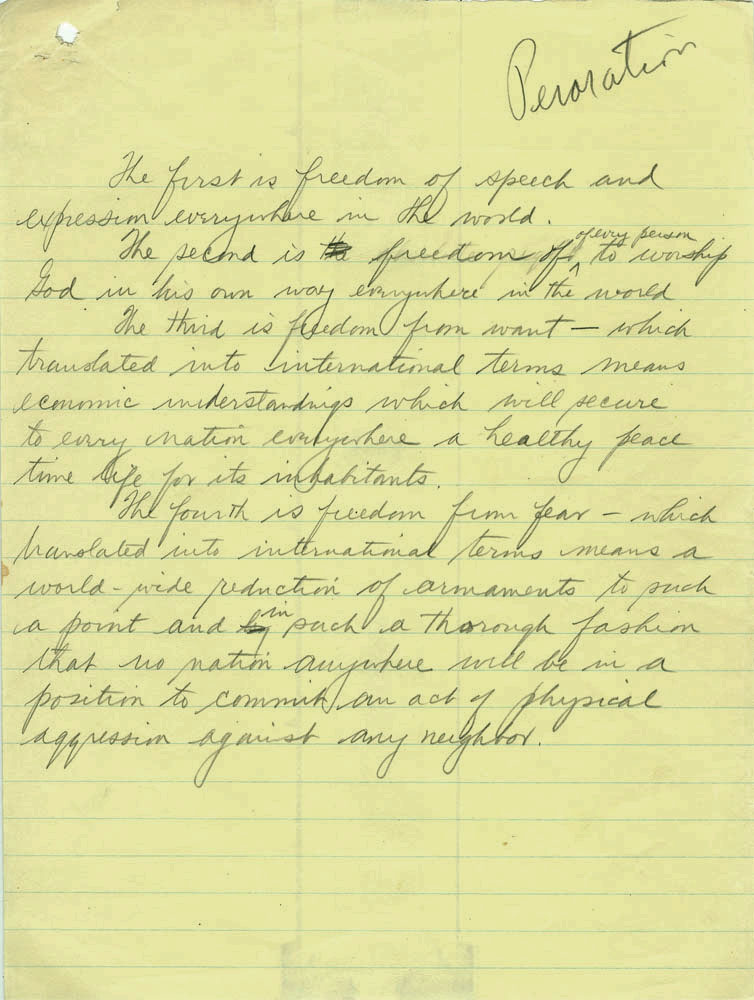 Peroration
The first is freedom of speech and
expression everywhere in the world.
of every person
The second is the freedom of to worship
God in his own way everywhere in the world
The third is freedom from want — which
translated into international terms means
economic understandings which will secure
to every nation everywhere a healthy peace
time life for its inhabitants.
The fourth is freedom from fear — which
translated into international terms means a
world-wide reduction of armaments to such
a point and by in such a thorough fashion
that no nation anywhere will be in a
position to commit an act of physical
aggression against any neighbor.